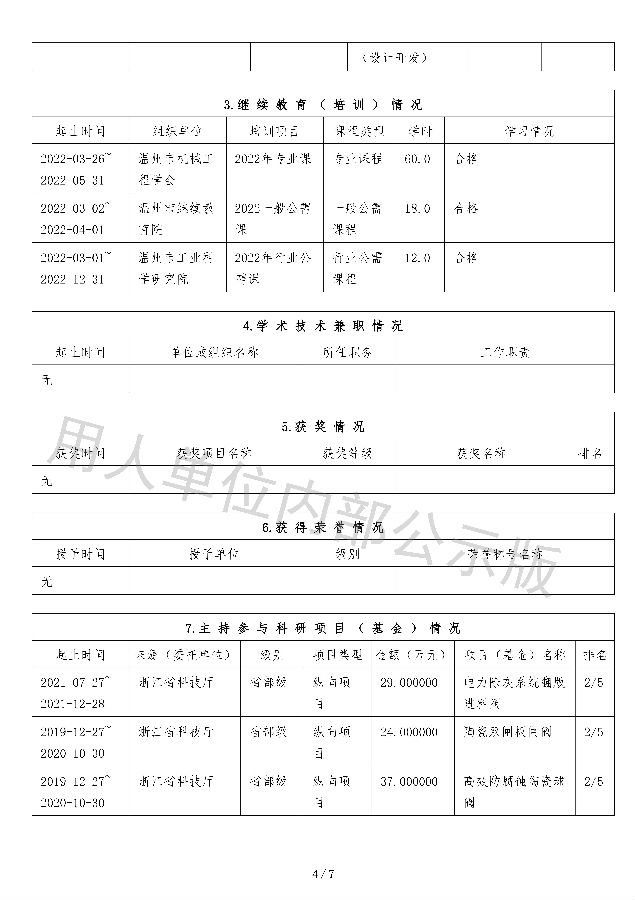 （设计开发）
3.继续教育（培训）情况
起止时间 组织单位 培训项目 课程类型 学时 学习情况
2022-03-26~ 温州市机械工 2022年专业课 专业课程 60.0 合格
2022-05-31 程学会
2022-03-02~ 温州市继续教 2022一般公需 一般公需 18.0 合格
2022-04-01 育院 课 课程
2022-03-01~ 温州市工业科 2022年行业公 行业公需 12.0 合格
2022-12-31 学研究院 需课 课程
4.学术技术兼职情况
起止时间 单位或组织名称 所任职务 工作职责
无
5.获奖情况
获奖时间 获奖项目名称 获奖等级 获奖名称 排名
无
6.获得荣誉情况
授予时间 授予单位 级别 荣誉称号名称
无
7.主持参与科研项目（基金）情况
起止时间 来源（委托单位） 级别 项目类型 金额（万元） 项目（基金）名称 排名
2021-07-27~ 浙江省科技厅 省部级 纵向项 29.000000 电力除灰系统 2/5
2021-12-28 目 进料阀
2019-12-27~ 浙江省科技厅 省部级 纵向项 24.000000 陶瓷双闸板闸阀 2/5
2020-10-30 目
2019-12-27~ 浙江省科技厅 省部级 纵向项 37.000000 高效防腐蚀陶瓷球 2/5
2020-10-30 目 阀
用人单位内部公示版
4/7